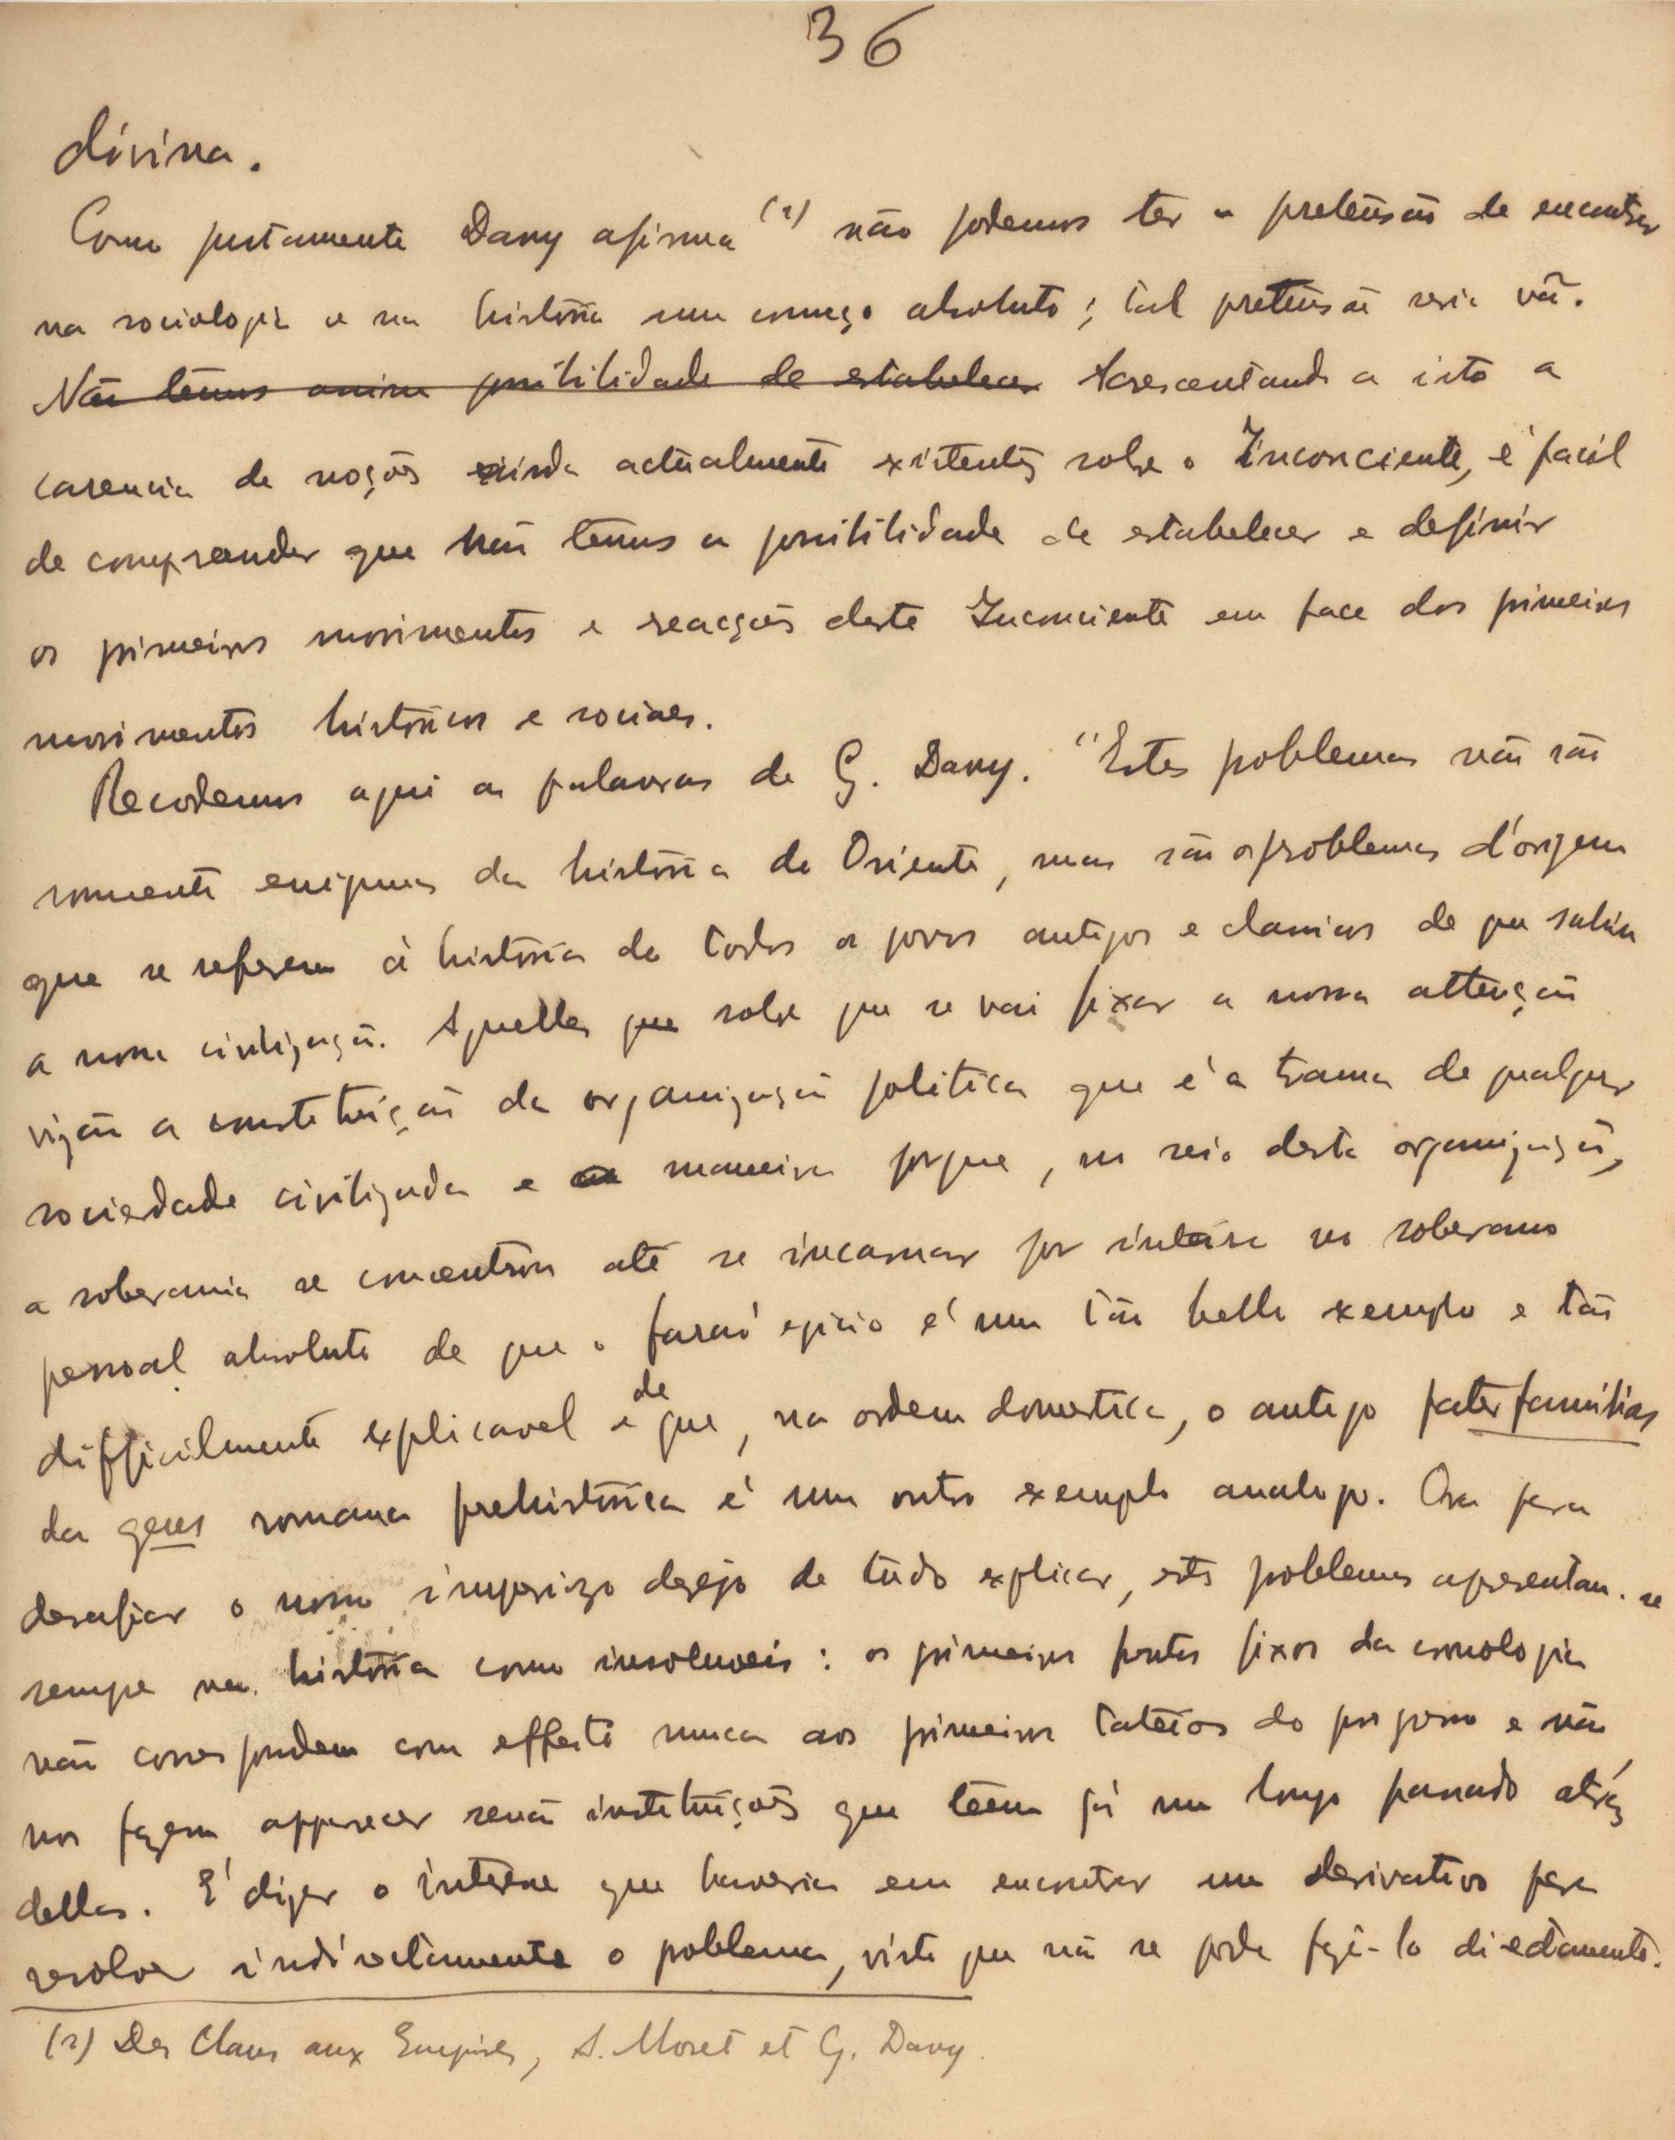 36
divina.
Como justamente Davy afirma (1) não podemos ter a pretensão de encontrar
na sociologia e na história um começo absoluto; tal pretensão seria vã.
Não temos assim possibilidade de estabelecer Acrescentando a isto a
carencia de noções ainda actualmente existentes sobre o Inconciente, é facil
de comprender que não temos a possibilidade de estabelecer e definir
os primeiros movimentos e reacções deste Inconciente em face dos primeiros
movimentos históricos e sociaes.
Recordemos aqui as palavras de G. Davy. "Estes problemas não são
somente enigmas da história do Oriente, mas são os problemas d'origem
que se referem á história de todos os povos antigos e classicos de que sahiu
a nossa civilização. Aquelles que sobre que se vai fixar a nossa attenção
visão a constituição da organização politica que é a trama de qualquer
sociedade civilizada e a maneira porque, no seio desta organização,
a soberania se concentrou até se incarnar por inteiro no soberano
pessoal absoluto de que o faraó egicio é um tão bello exemplo e tão
difficilmente explicavel e de que, na ordem domestica, o antigo pater familias
da gens romana prehistórica é um outro exemplo analogo. Ora para
desafiar o nosso imperioso desejo de tudo explicar, estes problemas apresentam-se
sempre na história como insoluveis: os primeiros pontos fixos da cronologia
não correspondem com effeito nunca aos primeiros tateios do progresso e não
nos fazem apparecer senão instituições que teem já um longo passado atráz
dellas. É dizer o interesse que haveria em encontrar um derivativo para
resolver indirectamente o problema, visto que não se pode fazê-lo directamente.
(1) Des Clans aux Empires, A. Moret et G. Davy.